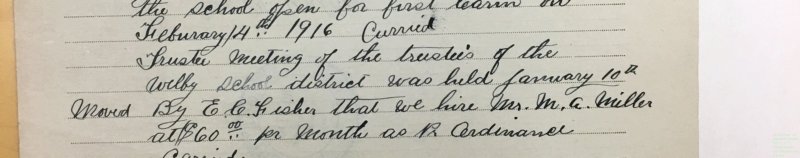 the school open for first tearm on
Feburary 14th 1916 Curried
Trustee Meeting of the trustee's of the
Wilby school district was held January 10th
Moved By E.C. Fisher that we hire Mr. M.A. Miller
at $60 00 pr Month as Pr Ordinance
Carried